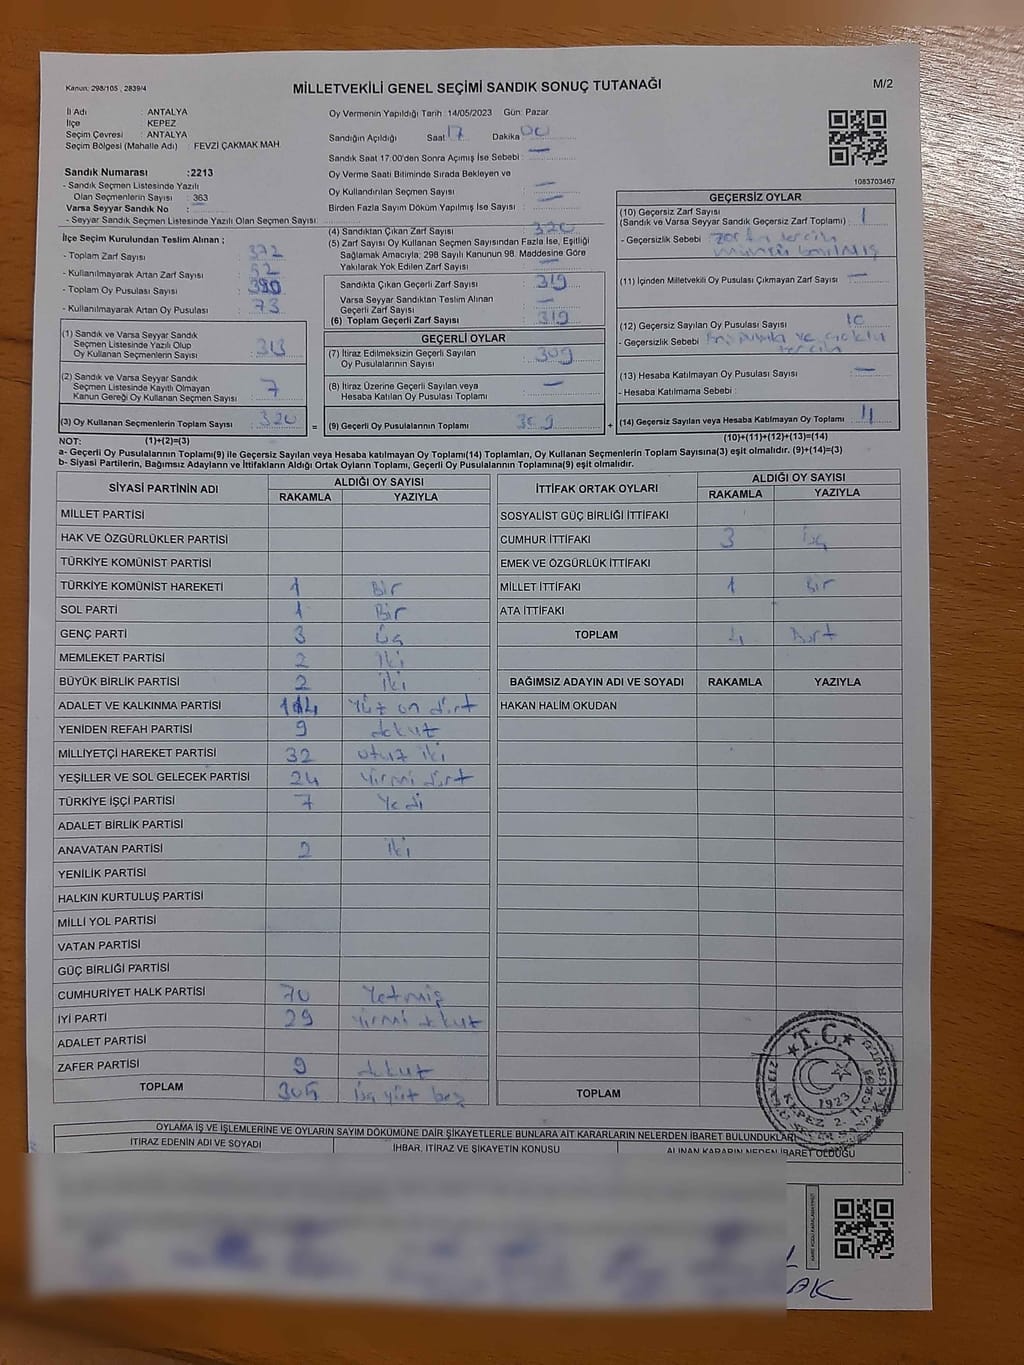 Kanun; 298/105 , 2839/4
MİLLETVEKİLİ GENEL SEÇİMİ SANDIK SONUÇ TUTANAĞI
M/2
İl Adı : ANTALYA
İlçe : KEPEZ
Seçim Çevresi : ANTALYA
Seçim Bölgesi (Mahalle Adı) : FEVZİ ÇAKMAK MAH
Sandık Numarası :2213
- Sandık Seçmen Listesinde Yazılı
Olan Seçmenlerin Sayısı : 363
Varsa Seyyar Sandık No :
- Seyyar Sandık Seçmen Listesinde Yazılı Olan Seçmen Sayısı:
Oy Vermenin Yapıldığı Tarih : 14/05/2023 Gün: Pazar
Sandığın Açıldığı Saat 17 Dakika 00
Sandık Saat 17:00'den Sonra Açımış İse Sebebi : —
Oy Verme Saati Bitiminde Sırada Bekleyen ve
Oy Kullandırılan Seçmen Sayısı —
Birden Fazla Sayım Döküm Yapılmış İse Sayısı : —
1083703467
İlçe Seçim Kurulundan Teslim Alınan ;
- Toplam Zarf Sayısı : 372
- Kullanılmayarak Artan Zarf Sayısı : 52
- Toplam Oy Pusulası Sayısı : 390
- Kullanılmayarak Artan Oy Pusulası : 73
(1) Sandık ve Varsa Seyyar Sandık
Seçmen Listesinde Yazılı Olup
Oy Kullanan Seçmenlerin Sayısı : 313
(2) Sandık ve Varsa Seyyar Sandık
Seçmen Listesinde Kayıtlı Olmayan
Kanun Gereği Oy Kullanan Seçmen Sayısı : 7
(3) Oy Kullanan Seçmenlerin Toplam Sayısı : 320
(4) Sandıktan Çıkan Zarf Sayısı : 320
(5) Zarf Sayısı Oy Kullanan Seçmen Sayısından Fazla İse, Eşitliği
Sağlamak Amacıyla; 298 Sayılı Kanunun 98. Maddesine Göre
Yakılarak Yok Edilen Zarf Sayısı : —
Sandıkta Çıkan Geçerli Zarf Sayısı : 319
Varsa Seyyar Sandıktan Teslim Alınan
Geçerli Zarf Sayısı : —
(6) Toplam Geçerli Zarf Sayısı : 319
GEÇERLİ OYLAR
(7) İtiraz Edilmeksizin Geçerli Sayılan
Oy Pusulalarının Sayısı : 309
(8) İtiraz Üzerine Geçerli Sayılan veya
Hesaba Katılan Oy Pusulası Toplamı : —
= (9) Geçerli Oy Pusulalarının Toplamı : 309 +
GEÇERSİZ OYLAR
(10) Geçersiz Zarf Sayısı
(Sandık ve Varsa Seyyar Sandık Geçersiz Zarf Toplamı) : 1
- Geçersizlik Sebebi : tercih
(11) İçinden Milletvekili Oy Pusulası Çıkmayan Zarf Sayısı : —
(12) Geçersiz Sayılan Oy Pusulası Sayısı : 10
- Geçersizlik Sebebi : ve
tercih
(13) Hesaba Katılmayan Oy Pusulası Sayısı : —
- Hesaba Katılmama Sebebi :
(14) Geçersiz Sayılan veya Hesaba Katılmayan Oy Toplamı : 11
NOT: (1)+(2)=(3)
(10)+(11)+(12)+(13)=(14)
a- Geçerli Oy Pusulalarının Toplamı(9) ile Geçersiz Sayılan veya Hesaba katılmayan Oy Toplamı(14) Toplamları, Oy Kullanan Seçmenlerin Toplam Sayısına(3) eşit olmalıdır. (9)+(14)=(3)
b- Siyasi Partilerin, Bağımsız Adayların ve İttifakların Aldığı Ortak Oyların Toplamı, Geçerli Oy Pusulalarının Toplamına(9) eşit olmalıdır.
SİYASİ PARTİNİN ADI
ALDIĞI OY SAYISI
RAKAMLA YAZIYLA
MİLLET PARTİSİ
HAK VE ÖZGÜRLÜKLER PARTİSİ
TÜRKİYE KOMÜNİST PARTİSİ
TÜRKİYE KOMÜNİST HAREKETİ 1 Bir
SOL PARTİ 1 Bir
GENÇ PARTİ 3 Üç
MEMLEKET PARTİSİ 2 iki
BÜYÜK BİRLİK PARTİSİ 2 iki
ADALET VE KALKINMA PARTİSİ 114 Yüz on dört
YENİDEN REFAH PARTİSİ 9 dokuz
MİLLİYETÇİ HAREKET PARTİSİ 32 otuz iki
YEŞİLLER VE SOL GELECEK PARTİSİ 24 yirmi dört
TÜRKİYE İŞÇİ PARTİSİ 7 Yedi
ADALET BİRLİK PARTİSİ
ANAVATAN PARTİSİ 2 iki
YENİLİK PARTİSİ
HALKIN KURTULUŞ PARTİSİ
MİLLİ YOL PARTİSİ
VATAN PARTİSİ
GÜÇ BİRLİĞİ PARTİSİ
CUMHURİYET HALK PARTİSİ 70 Yetmiş
İYİ PARTİ 29 yirmi dokuz
ADALET PARTİSİ
ZAFER PARTİSİ 9 dokuz
TOPLAM 305 üç yüz beş
İTTİFAK ORTAK OYLARI
ALDIĞI OY SAYISI
RAKAMLA YAZIYLA
SOSYALİST GÜÇ BİRLİĞİ İTTİFAKI
CUMHUR İTTİFAKI 3 üç
EMEK VE ÖZGÜRLÜK İTTİFAKI
MİLLET İTTİFAKI 1 Bir
ATA İTTİFAKI
TOPLAM 4 Dört
BAĞIMSIZ ADAYIN ADI VE SOYADI RAKAMLA YAZIYLA
HAKAN HALİM OKUDAN
TOPLAM
T.C.
1923
KEPEZ 2. İLÇE
OYLAMA İŞ VE İŞLEMLERİNE VE OYLARIN SAYIM DÖKÜMÜNE DAİR ŞİKAYETLERLE BUNLARA AİT KARARLARIN NELERDEN İBARET BULUNDUKLARI
İTİRAZ EDENİN ADI VE SOYADI
İHBAR, İTİRAZ VE ŞİKAYETİN KONUSU
ALINAN KARARIN NEDEN İBARET OLDUĞU